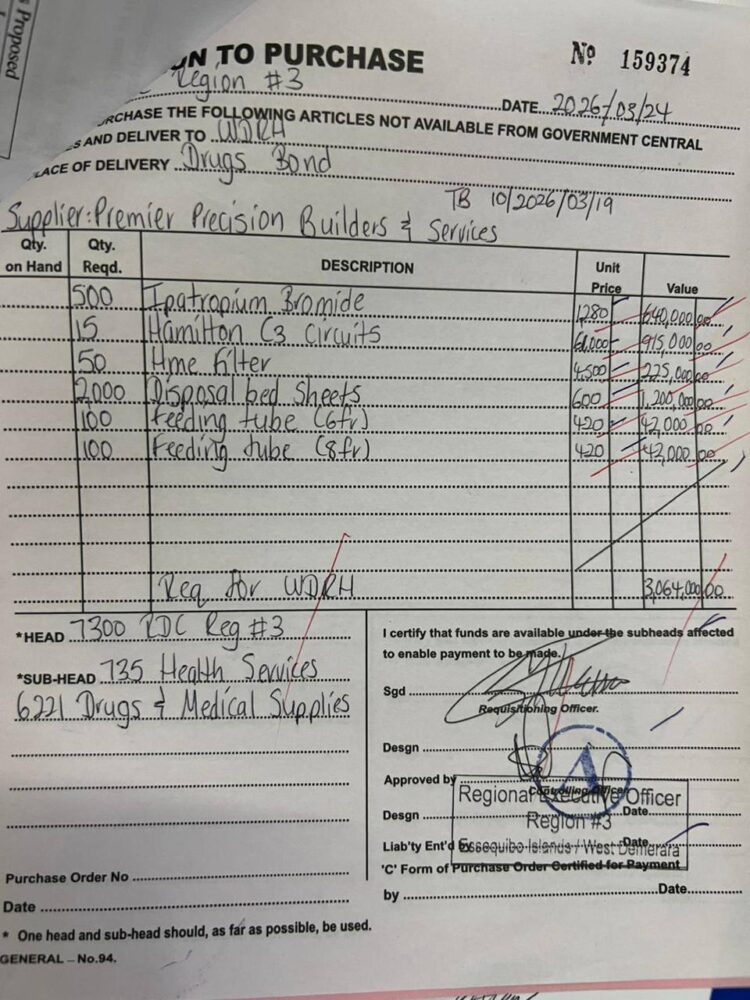 s Proposed
ON TO PURCHASE
Nº 159374
Region #3
DATE 2026/03/24
RCHASE THE FOLLOWING ARTICLES NOT AVAILABLE FROM GOVERNMENT CENTRAL
S AND DELIVER TO WDRH
LACE OF DELIVERY Drugs Bond
TB 10/2026/03/19
Supplier: Premier Precision Builders & Services
Qty. on Hand Qty. Reqd. DESCRIPTION Unit Price Value
500 Ipatropium Bromide 1,280 640,000.00
15 Hamilton C3 Circuits 61,000 915,000.00
50 Hme Filter 4,500 225,000.00
2,000 Disposal bed Sheets 600 1,200,000.00
100 Feeding tube (6fr) 420 42,000.00
100 Feeding tube (8fr) 420 42,000.00
Req for WDRH 3,064,000.00
*HEAD 7300 RDC Reg #3
*SUB-HEAD 735 Health Services
6221 Drugs & Medical Supplies
Purchase Order No
Date
I certify that funds are available under the subheads affected
to enable payment to be made.
Sgd
Requisitioning Officer.
Desgn
Approved by
Controlling Officer
Regional Executive Officer
Desgn Date
Region #3
Liab'ty Ent'd by Date
Essequibo Islands / West Demerara
'C' Form of Purchase Order Certified for Payment
by Date
* One head and sub-head should, as far as possible, be used.
GENERAL – No.94.